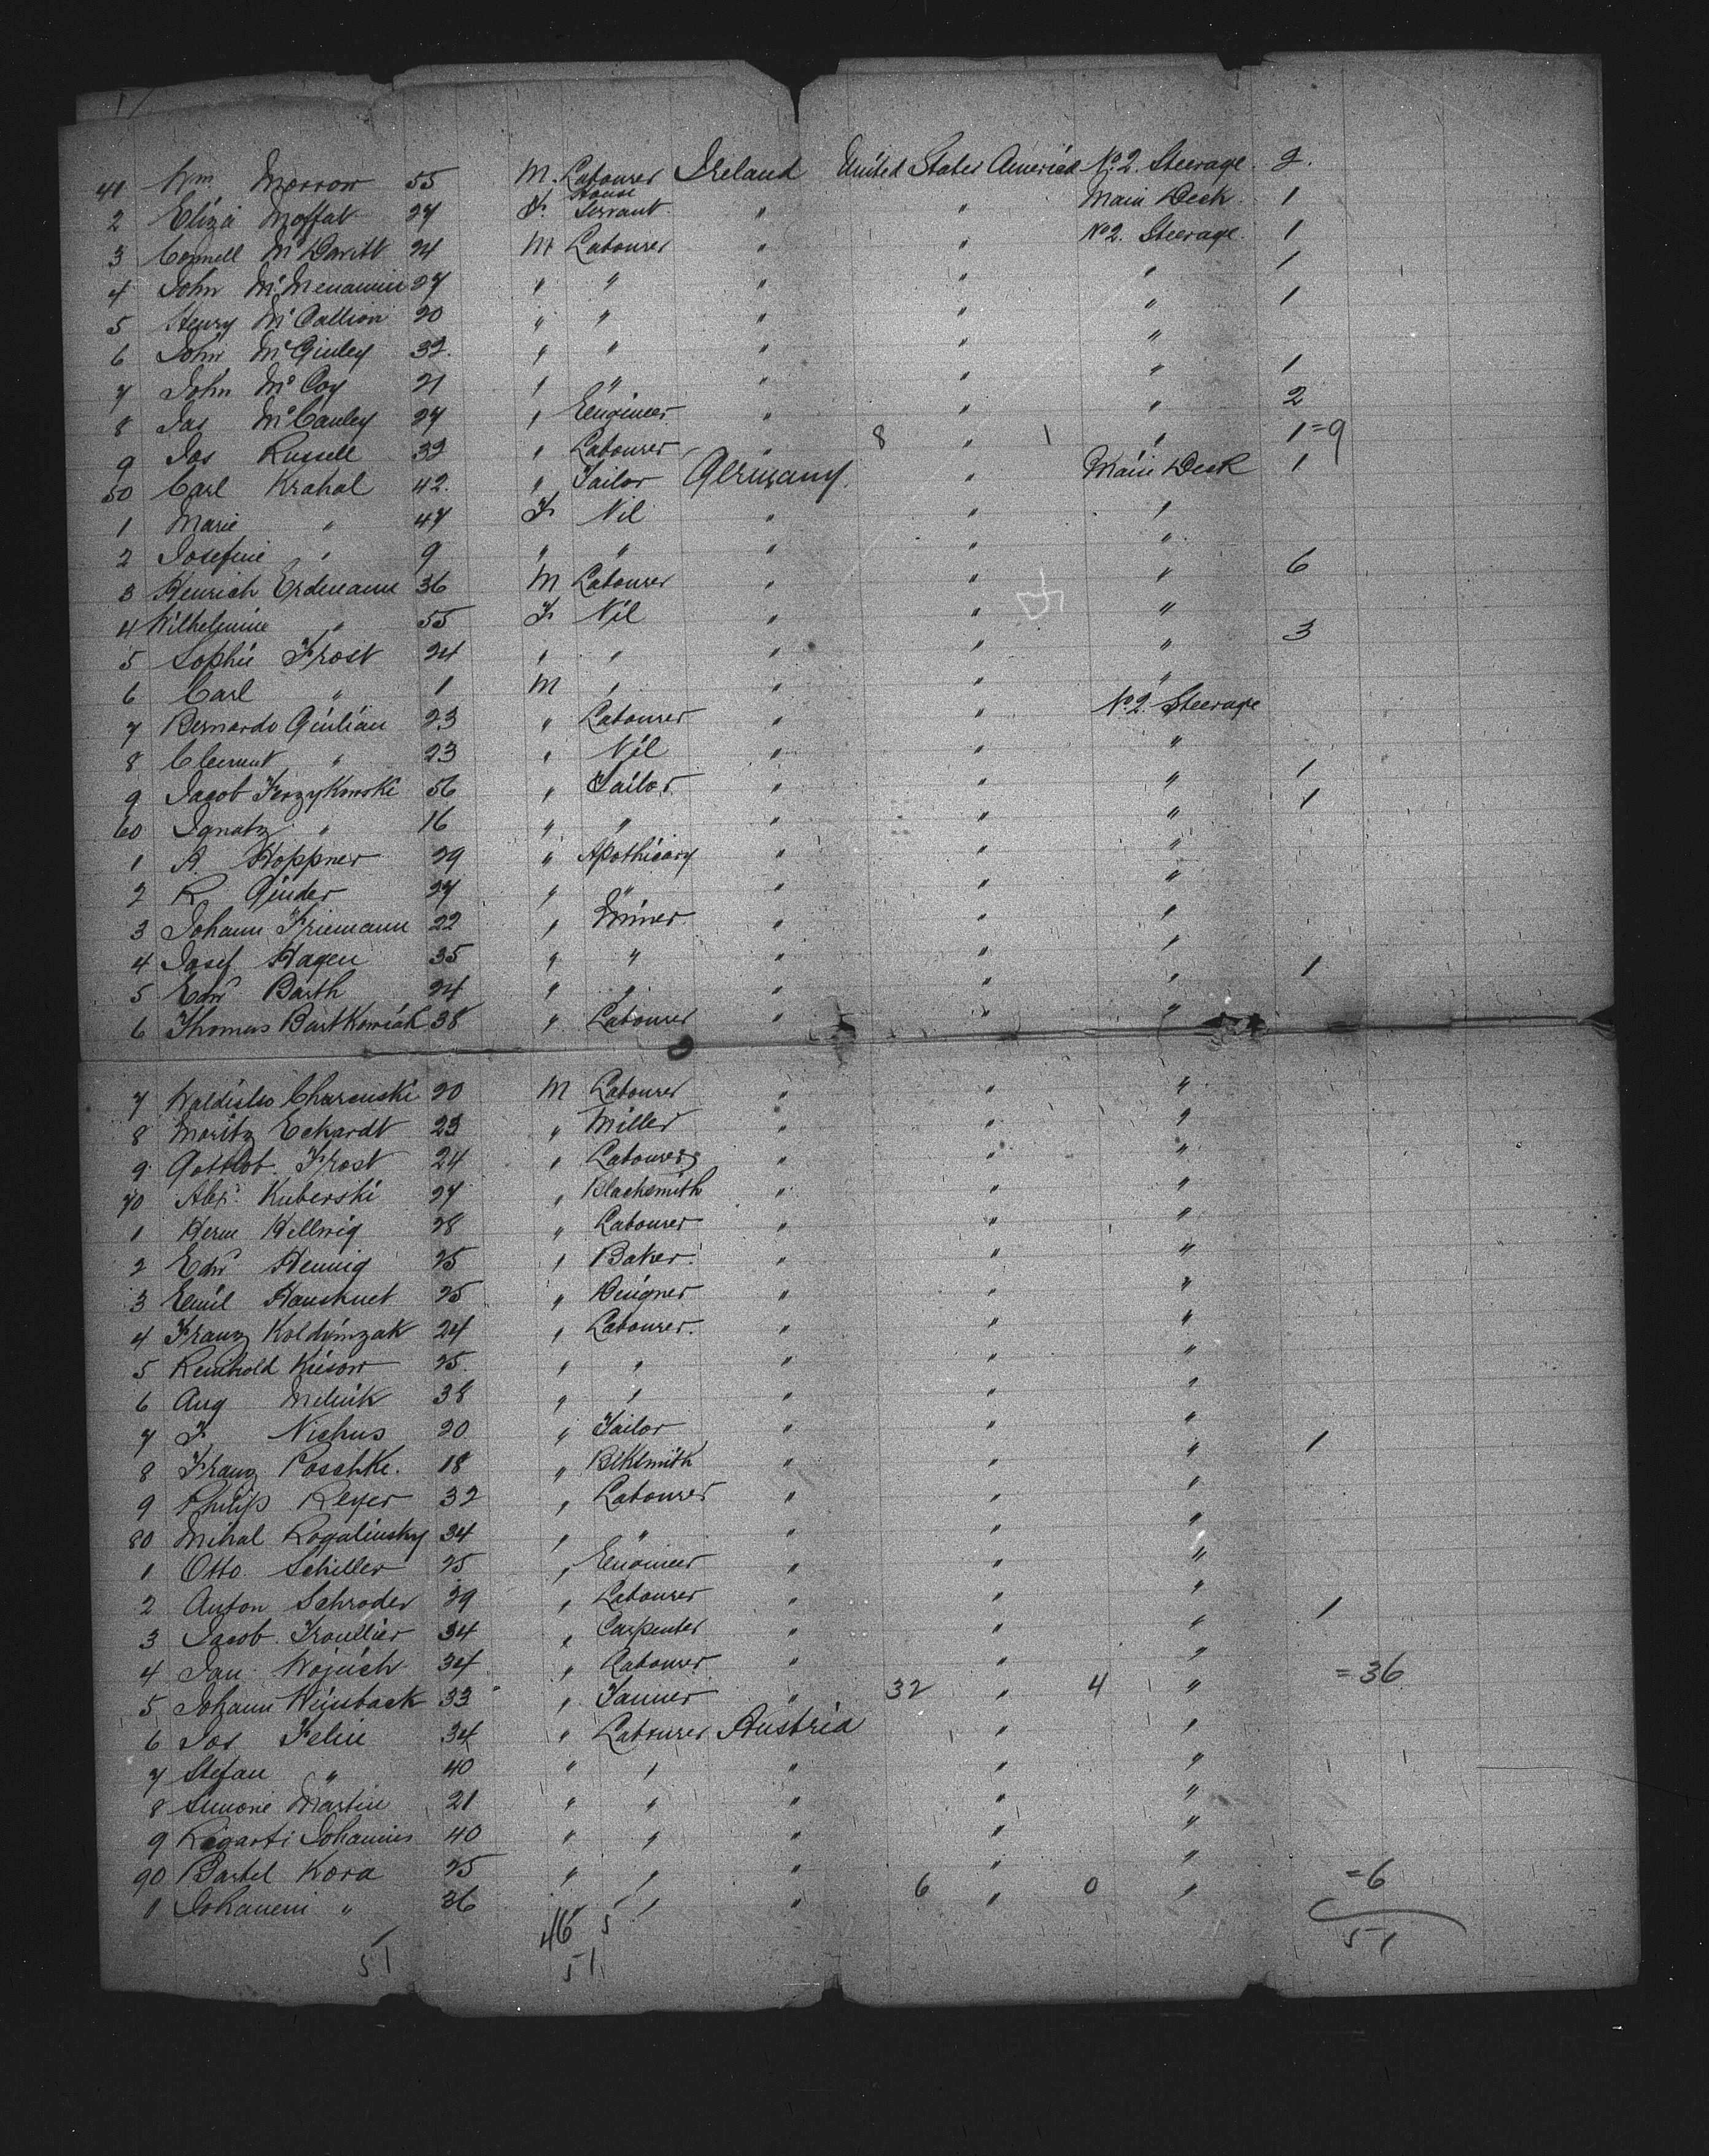 41 Wm Morrow 55 M. Labourer Ireland United States America No 2. Steerage. 2.
2 Eliza Moffat 27 F. House Servant " " Main Deck. 1
3 Connell McDavitt 24 M Labourer " " No 2. Steerage. 1
4 John McMenamin 27 " " " " " 1
5 Henry McCallion 20 " " " " " 1
6 John McGinley 32. " " " " "
7 John McCoy 21 " " " " " 1
8 Jas McCauley 27 " Engineer " " " 2
9 Jos Russell 32 " Labourer " 8 " 1 " 1=9
50 Carl Krahal 42. " Tailor Germany. " Main Deck 1
1 Marie " 47 F Nil " " "
2 Josefine " 9 " " " " "
3 Heinrich Erdmann 36 M Labourer " " " 6
4 Wilhelmine " 55 F Nil " " "
5 Sophie Frost 24 " " " " " 3
6 Carl " 1 M " " " "
7 Bernardo Giulian 23 " Labourer " " No 2. Steerage
8 Clement " 23 " Nil " " "
9 Jacob 56 " Tailor. " " " 1
60 Ignatz " 16 " " " " " 1
1 A. Hoppner 29 " Apothicary " " "
2 R Ginder 27 " " " " "
3 Johann Friemann 22 " Miner. " " "
4 Josef Hagen 35 " " " " "
5 Edw Barth 24 " " " " " 1
6 Thomas Bartkowiak 38 " Labourer " " "
7 20 M Labourer " " "
8 Moritz Eckardt 23 " Miller " " "
9 Gottlob. Frost 24 " Labourer " " "
70 Alex. Kuberski 27 " Blacksmith " " "
1 Herm Hellwig 28 " Labourer " " "
2 Edw Hennig 25 " Baker. " " "
3 Emil 25 " " " "
4 Franz 24 " Labourer. " " "
5 Reinhold Kiesow 25. " " " " "
6 Aug Melnik 38 " " " " "
7 F Nichus 20 " Tailor " " "
8 Franz Poschke. 18 " Blksmith " " " 1
9 Philip Reyer 32 " Labourer " " "
80 Mihal Rogalinsky 34 " " " " "
1 Otto. Schiller 25 " Engineer " " "
2 Anton Schroder 39 " Labourer " " "
3 Jacob. 34 " Carpenter " " " 1
4 Jan. Wojcich 34 " Labourer " " "
5 Johann Weisback 33 " Tanner " 32 " 4 " =36
6 Jos Felin 34 " Labourer Austria " "
7 Stefan " 40 " " " " "
8 Simone Martin 21 " " " " "
9 Johannis 40 " " " " "
90 Bartel Kora 25 " " " " "
1 " 36 " " " 6 " 0 " =6
51 46 5 51
51